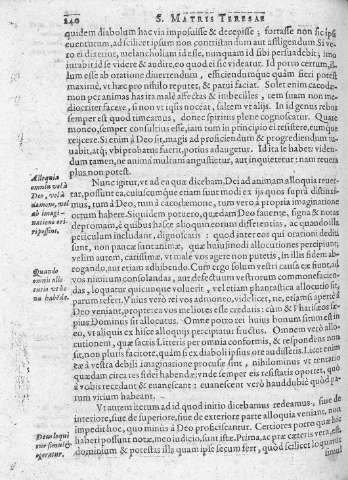 240 S. MATRIS TERESAE
quidem diabolum hac via imposuisse & decepisse; fortasse non sic ipsi
euenturum, ad scilicet ipsum non contristandum aut affligendum. Si ve-
ro ei dixerint, melancholiam id esse, nunquam id sibi persuadebit; imo
iurabit id se videre & audire, eo quod ei sic videatur. Id porro certum, il-
lum esse ab oratione diuertendum, efficiendumque quàm fieri potest
maximè, vt hæc pro nihilo reputet, & parui faciat. Solet enim cacodæ-
mon per animas hasita malè affectas & imbecilles, tem suam non me-
diocriter facere, si non vt ipsis noceat, saltem vt alijs. In id genus rebus
semper est quod timeamus, donec spiritus plene cognoscatur. Quare
moneo, semper consultius esse, iam tum in principio ei resistere, eumque
reijcere. Si enim à Deo sit, magis ad proficiendum & progrediendum iu-
uabit, atq; vbi probatus fuerit, potius adaugetur. Id ita se habet: viden-
dum tamen, ne animâ multum angustietur, aut inquietetur: nam reuera
plus non potest.
Nunc igitur, vt ad ea quæ dicebam, Dei ad animam alloquia reuer-
tar, possunt ea, cuiuscunque etiam sint modi ex ijs quos supra distinxi-
mus, tum à Deo, tum à cacodæmone, tum verò à propria imaginatione
ortum habere. Siquidem potuero, quædam Deo fauente, signa & notas
depromam, è quibus hasce alloquiorum differentias, ac quando ista
periculum includant, dignoscatis: quod interest qui orationi dediti
sunt, non paucæ sint animæ, quæ huiusmodi allocutiones percipiunt;
velim autem, carissimæ, vt malè vos agere non putetis, in illis fidem ab-
rogando, aut etiam adhibendo. Cum ergo solum vestri causâ ex siunt, ad
vos nimirum consolandas, aut defectuum vestrorum commonefaciendas,
loquatur quicunque voluerit, vel etiam phantastica allocutio sit,
parum refert. Vnius verò rei vos admoneo, videlicet, ne, etiamsi apertè à
Deo veniant, propterea vos meliores esse credatis: cùm & Pharisæos sæ-
pius Dominus sit allocutus. Omne porrò ei huius bonum situm est in
eo, vt aliquis ex hisce alloquijs percipiatur fructus. Omnem verò allo-
cutionem, quæ sactis Litteris per omnia conformis, & respondens non
sit, non pluris facitote, quàm si ex diaboli ipsius ore audissetis. Licet enim
ista à vestra debili imaginatione procuse sint, nihilominus vt tentatio
quædam circa res fidei habenda, vnde semper eis resistatis oportet, quò
à vobis recedant & euanescant: euanescent verò haud dubiè quòd pa-
rum vicium habeant.
Vt autem iterum ad quod initio dicebamus redeamus, siue de
interiore, siue de superiore, siue de exteriore parte alloquia veniant, non
impedit, quo minus à Deo proficiscantur. Certiores porro quæ hic
haberi possunt notæ, meo iudicio, sunt istæ. Prima, ac præ cæteris vera, est,
dominium & potestas illa quam ipsæ secum fert, quòd scilicet loquantur
Alloquia
omnia vel à
Deo, vel à
dæmone, vel
ab imagi-
natione ori-
ri possunt.
Quando
omnis allo-
cutio verè bo-
na habeda.
Deus loqui-
tur simul &
operatur.